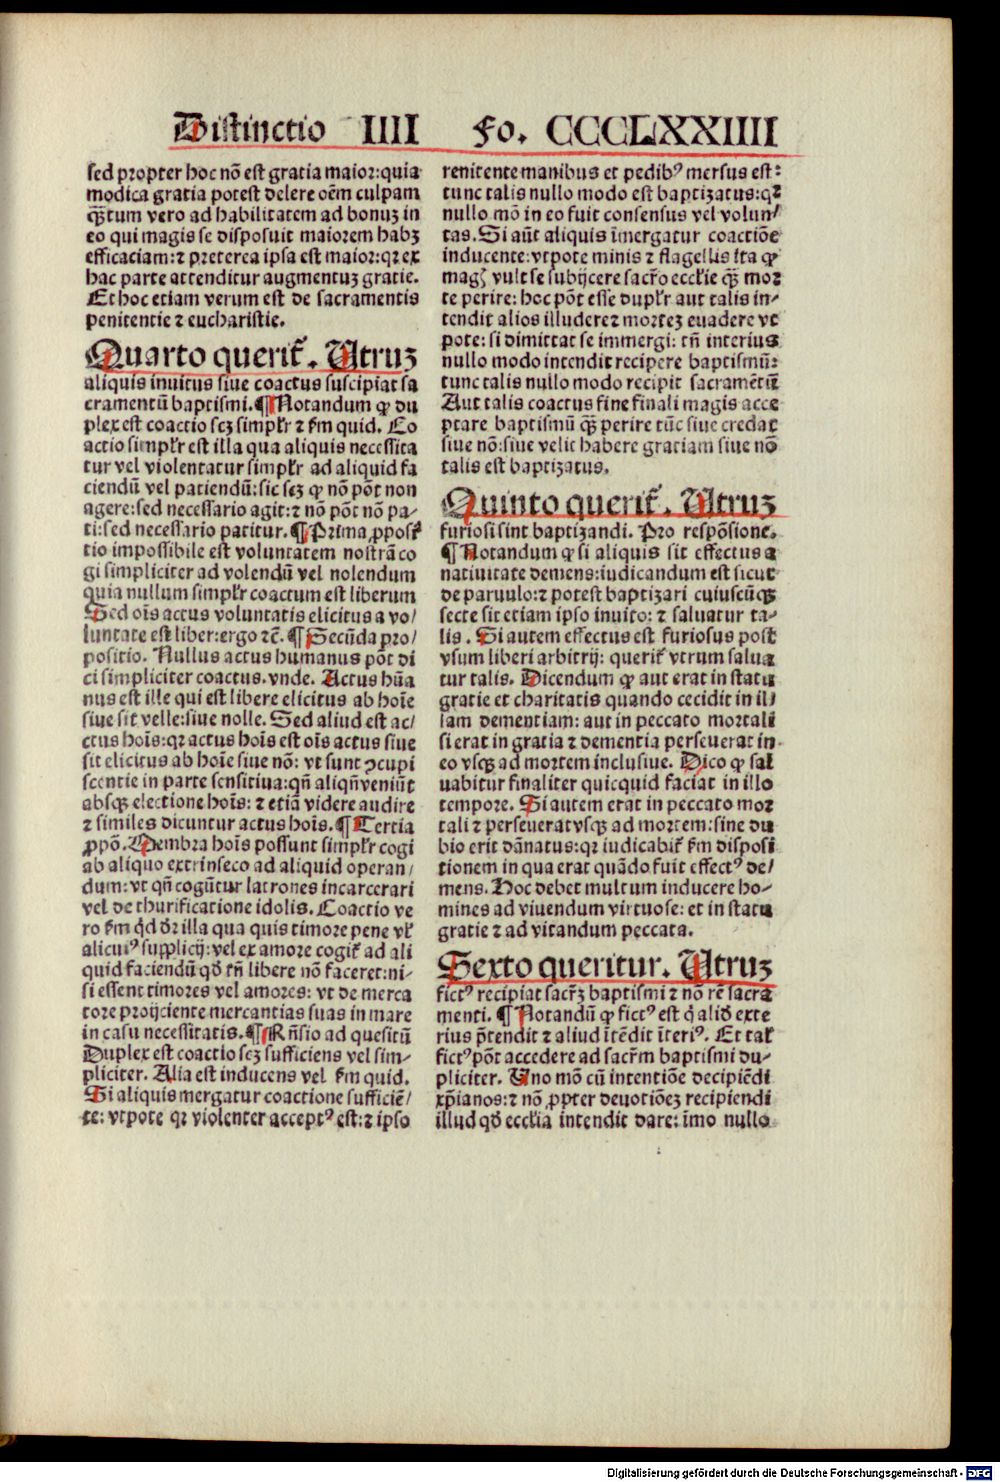 Distinctio IIII Fo. CCCCLXXIIII
sed propter hoc nõ est gratia maior:quia
modica gratia potest delere oẽm culpam
q̃ʒtum vero ad habilitatem ad bonuʒ in
eo qui magis se disposuit maiorem habʒ
efficaciam:⁊ preterea ipsa est maior:qꝛ ex
hac parte attenditur augmentuʒ gratie.
Et hoc etiam verum est de sacramentis
penitentie ⁊ eucharistie.
Quarto querit᷑. Utruʒ
aliquis inuitus siue coactus suscipiat sa
cramentũ baptismi.¶Notandum ꝙ du
plex est coactio scʒ simplr̃ ⁊ ẜm quid. Co
actio simplr̃ est illa qua aliquis necessita
tur vel violentatur simplr̃ ad aliquid fa
ciendũ vel patiendũ:sic scʒ ꝙ nõ põt non
agere:sed necessario agit:⁊ nõ põt nõ pa⸗
ti:sed necessario patitur.¶Prima ꝓposi
tio impossibile est voluntatem nostrã co
gi simpliciter ad volendũ vel nolendum
quia nullum simplr̃ coactum est liberum
Sed oĩs actus voluntatis elicitus a vo/
luntate est liber:ergo ⁊c̃.¶Secũda pro/
positio. Nullus actus humanus põt di
ci simpliciter coactus.vnde. Actus hũa
nus est ille qui est libere elicitus ab hoĩe
siue sit velle:siue nolle. Sed aliud est ac/
ctus hoĩs:qꝛ actus hoĩs est oĩs actus siue
sit elicitus ab hoĩe siue nõ: vt sunt ↄcupi
scentie in parte sensitiua:qñ aliqñ veniũt
absqꝫ electione hoĩs: ⁊ etiã videre audire
⁊ similes dicuntur actus hoĩs.¶Tertia
ꝓpõ. Membra hoĩs possunt simplr̃ cogi
ab aliquo extrinseco ad aliquid operan/
dum:vt qñ cogũtur latrones incarcerari
vel de thurificatione idolis. Coactio ve
ro ẜm qd̓ dr̃ illa qua quis timore pene vl̓
alicuiꝰ supplicij:vel ex amore cogit᷑ ad ali
quid faciendũ qđ tñ libere nõ faceret:ni⸗
si essent timores vel amores: vt de merca
tore proijciente mercantias suas in mare
in casu necessitatis.¶Rñsio ad quesitũ
Duplex est coactio scʒ sufficiens vel sim⸗
pliciter. Alia est inducens vel ẜm quid.
Si aliquis mergatur coactione sufficiẽ/
te: vtpote qꝛ violenter acceptꝰ est:⁊ ipso
renitente manibus et pedibꝰ mersus est:
tunc talis nullo modo est baptizatus:qꝛ
nullo mõ in eo fuit consensus vel volun/
tas. Si aũt aliquis ĩmergatur coactiõe
inducente:vtpote minis ⁊ flagellis ita ꝙ
magꝭ vult se subijcere sacr̃o eccl̓ie q̃ʒ moꝛ
te perire: hoc põt esse duplr̃ aut talis in⸗
tendit alios illudere⁊ morteʒ euadere vt
pote: si dimittat se immergi: tñ interius
nullo modo intendit recipere baptismũ:
tunc talis nullo modo recipit sacramẽtũ
Aut talis coactus fine finali magis acce
ptare baptismũ q̃ʒ perire tũc siue credat
siue nõ:siue velit habere gratiam siue nõ
talis est baptizatus.
Quinto querit᷑. Utruʒ
furiosi sint baptizandi. Pro respõsione.
¶Notandum ꝙ si aliquis sit effectus a
natiuitate demens:iudicandum est sicut
de paruulo:⁊ potest baptizari cuiuscũqꝫ
secte sit etiam ipso inuito: ⁊ saluatur ta⸗
lis. Si autem effectus est furiosus post
vsum liberi arbitrij: querit᷑ vtrum salua
tur talis. Dicendum ꝙ aut erat in statu
gratie et charitatis quando cecidit in il/
lam dementiam: aut in peccato mortali
si erat in gratia ⁊ dementia perseuerat in
eo vsqꝫ ad mortem inclusiue. Dico ꝙ sal
uabitur finaliter quicquid faciat in illo
tempore. Si autem erat in peccato moꝛ
tali ⁊ perseuerat vsqꝫ ad mortem:sine du
bio erit dãnatus:qꝛ iudicabit᷑ ẜm disposi
tionem in qua erat quãdo fuit effectꝰ de/
mens. Hoc debet multum inducere ho⸗
mines ad viuendum virtuose: et in statu
gratie ⁊ ad vitandum peccata.
Sexto queritur. Utruʒ
fictꝰ recipiat sacr̃ʒ baptismi ⁊ nõ rẽ sacra
menti. ¶Notandũ ꝙ fictꝰ est q̇ aliđ exte
rius p̃tendit ⁊ aliud ĩtẽdit ĩteriꝰ. Et tal̓
fictꝰ põt accedere ad sacr̃m baptismi du⸗
pliciter. Uno mõ cũ intentiõe decipiẽdi
xp̃ianos:⁊ nõ ꝓpter deuotiõeʒ recipiendi
illud qđ eccl̓ia intendit dare: ĩmo nullo
Digitalisierung gefördert durch die Deutsche Forschungsgemeinschaft - DFG